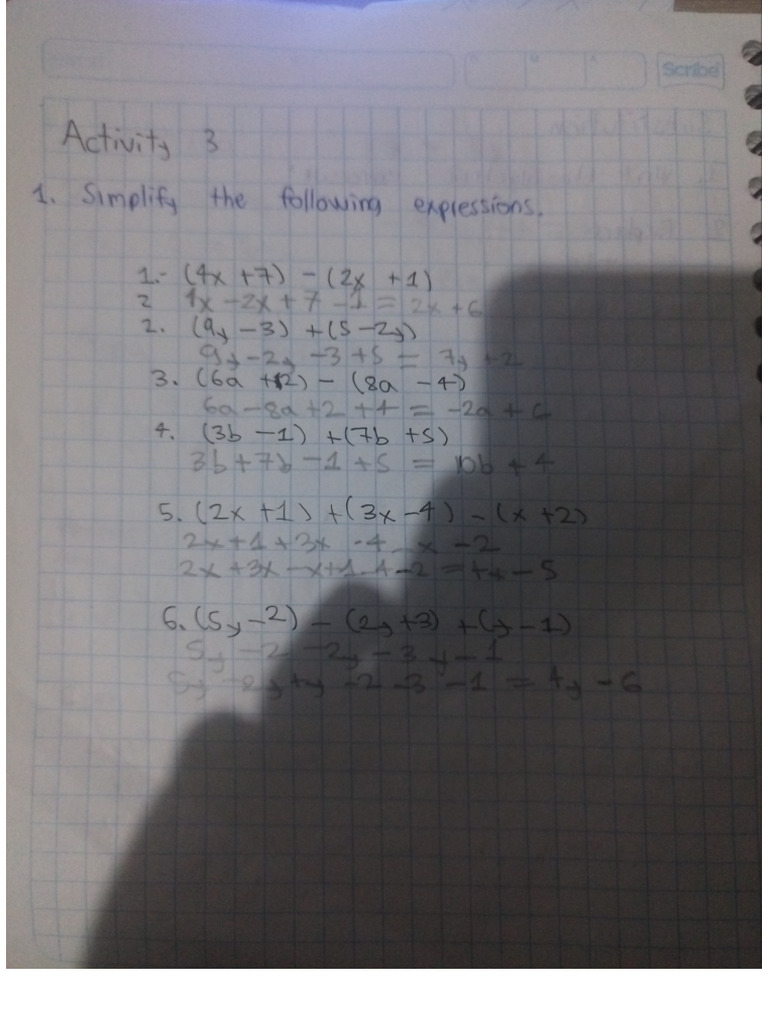 Scribe
Activity 3
1. Simplify the following expressions.
1.- (4x +7) - (2x +1)
2 4x -2x + 7 -1 = 2x + 6
2. (9y -3) +(5 -2y)
9y -2y -3 +5 = 7y +2
3. (6a +2) - (8a -4)
6a -8a +2 +4 = -2a + 6
4. (3b -1) +(7b +5)
3b +7b -1 +5 = 10b + 4
5. (2x +1) +(3x -4) - (x +2)
2x +1 +3x -4 -x -2
2x +3x -x +1 -4 -2 = 4x - 5
6. (5y -2) - (2y +3) +(y -1)
5y -2 -2y -3 y -1
5y -2y +y -2 -3 -1 = 4y - 6